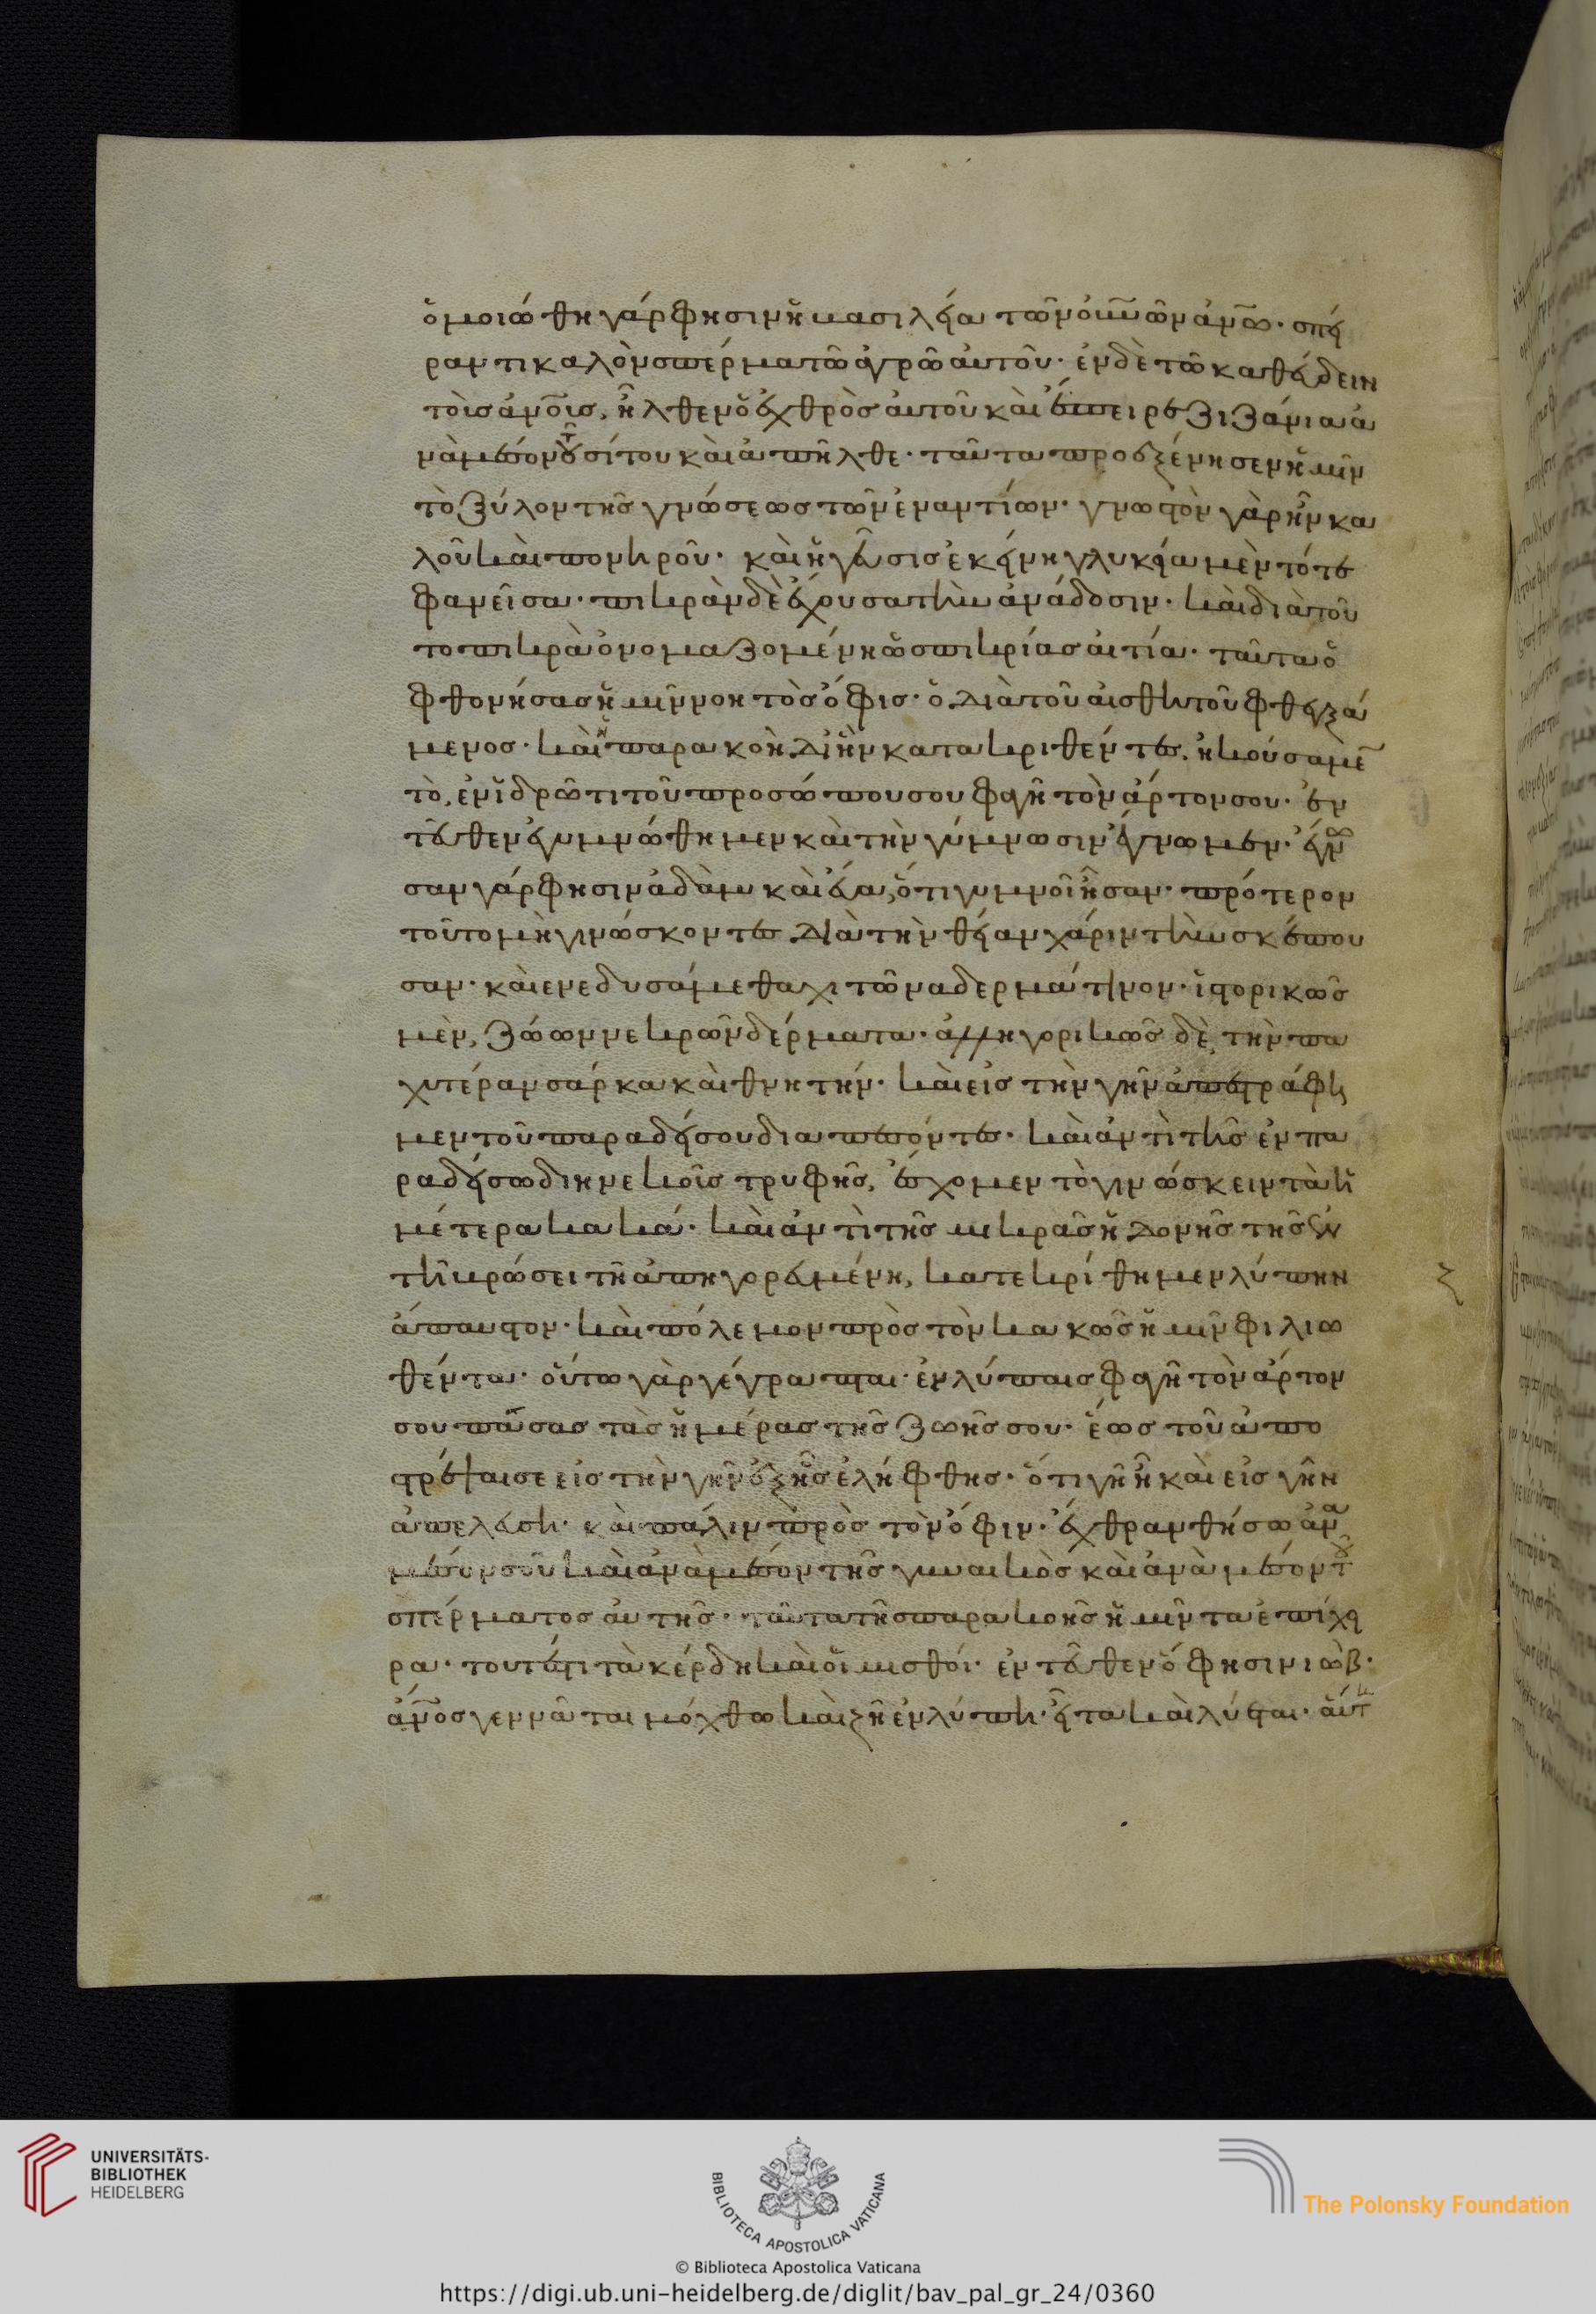 ὁμοιώθη γάρ φησιν ἡ βασιλεία τῶν οὐνῶν ἀνω· σπεί
ραντι καλὸν σπέρμα τῶ ἀγρῶ αὐτοῦ· ἐν δὲ τῶ καθεύδειν
τοὶς ἀνοις, ἦλθεν ὁ ἐχθρὸς αὐτοῦ καὶ ἔσπειρε ζιζάνια ἀ
νὰ μέσον τοῦ σίτου καὶ ἀπῆλθε· ταῦτα προεξένησεν ἡμῖν
τὸ ξύλον τῆς γνώσεως τῶν ἐναντίων· γνωστὸν γὰρ ἦν κα
λοῦ καὶ πονηροῦ· καὶ ἡ γεῦσις ἐκείνη γλυκεῖα μὲν τότε
φανεῖσα· πικρὰν δὲ ἔχουσα τὴν ἀνάδοσιν· καὶ διὰ τοῦ
το πικρὰ ὀνομαζομένη ὡς πικρίας αἰτία· ταῦτα ὁ
φθονήσας ἡμῖν νοητὸς ὄφις· ὁ διὰ τοῦ αἰσθητοῦ φθεγξά
μενος· καὶ ἡ παρακοὴ δι' ἣν κατακριθέντες, ἠκούσαμεν
τὸ, ἐν ἱδρῶτι τοῦ προσώπου σου φαγῆ τὸν ἄρτον σου· ἐν
τεῦθεν ἐγυμνώθημεν καὶ τὴν γύμνωσιν ἔγνωμεν· ἔγνω
σαν γάρ φησιν ἀδὰμ καὶ εὔα, ὅτι γυμνοὶ ἦσαν· πρότερον
τοῦτο μὴ γινώσκοντες διὰ τὴν θείαν χάριν τὴν σκέπου
σαν· καὶ ενεδυσάμεθα χιτῶνα δερμάτινον· ἱστορικῶς
μὲν, ζώων νεκρῶν δέρματα· ἀλληγορικῶς δὲ, τὴν πα
χυτέραν σάρκα καὶ θνητήν· καὶ εἰς τὴν γῆν ἀπεστράφη
μεν τοῦ παραδείσου διαπεσόντες· καὶ ἀντὶ τῆς ἐν πα
ραδείσω διηνεκοῖς τρυφῆς, ἔσχομεν τὸ γινώσκειν τὰ ἡ
μέτερα κακά· καὶ ἀντὶ τῆς μικρᾶς ἡδονῆς τῆς ἐν
τῆ βρώσει τῆ ἀπηγορευμένη, κατεκρίθημεν λύπην
ἄπαυστον· καὶ πόλεμον πρὸς τὸν κακῶς ἡμῖν φιλιω
θέντα· οὕτω γὰρ γέγραπται· ἐν λύπαις φαγῆ τὸν ἄρτον
σου πάσας τὰς ἡμέρας τῆς ζωῆς σου· ἕως τοῦ ἀπο
στρέψαι σε εἰς τὴν γῆν ἐξ ἧς ἐλήφθης· ὅτι γῆ ἦ καὶ εἰς γῆν
ἀπελεύση· καὶ πάλιν πρὸς τὸν ὄφιν· ἔχθραν θήσω ἀνα
μέσον σοῦ καὶ ἀνὰ μέσον τῆς γυναικὸς καὶ ἀνὰ μέσον τοῦ
σπέρματος αὐτῆς· ταῦτα τῆς παρακοῆς ἡμῖν τα ἐπίχει
ρα· τουτέστι τὰ κέρδη καὶ οἱ μισθοί· ἐντεῦθεν ὅ φησιν ἰὼβ·
ἄνος γεννᾶται μόχθω καὶ ζῆ ἐν λύπη· εἶτα καὶ λύεται· αὕτη